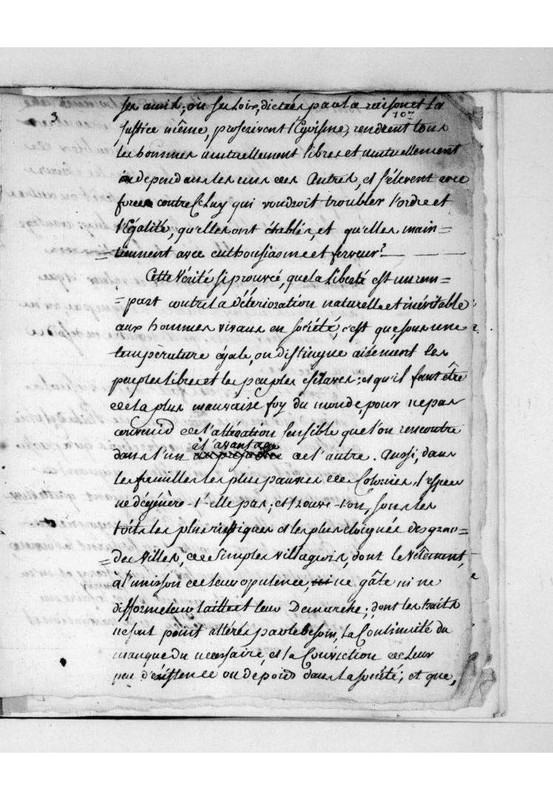 3
107
ses amis; où ses loix, dictées par la raison et la
justice même, proscrivent l'Egoisme, rendent tous
les hommes mutuellement libres et mutuellement
independans les uns des Autres, et s'élevent avec
force contre Celuy qui voudroit troubler l'ordre et
l'Egalité, qu'elles ont établis, et qu'elles main=
=tiennent avec enthousiasme et ferveur?
Cette Vérité si prouvée, que la liberté est un rem=
=part contre la déterioration naturelle et inévitable
aux hommes vivans en société, c'est que sous une
température égale, on distingue aisement les
peuples libres et les peuples esclaves: et qu'il faut être
de la plus mauvaise foy du monde, pour ne pas
convenir de l'altération sensible que l'on rencontre
et d'avantage
dans l'un de l'autre. Aussi, dans
les familles les plus pauvres des Colonies, l'espece
ne dégénere-t-elle pas; et trouve-t-on, sous les
toits les plus rustiques et les plus éloignés des gran=
=des Villes, de simples Villageois, dont le vêtement,
à l'unisson de leur opulence, ne gâte ni ne
difforme leur taille et leur Demarche; dont les traits
ne sont point altérés par le besoin, la Continuité du
manque du necessaire, et la Conviction de leur
peu d'existence ou de poids dans la société; et que,